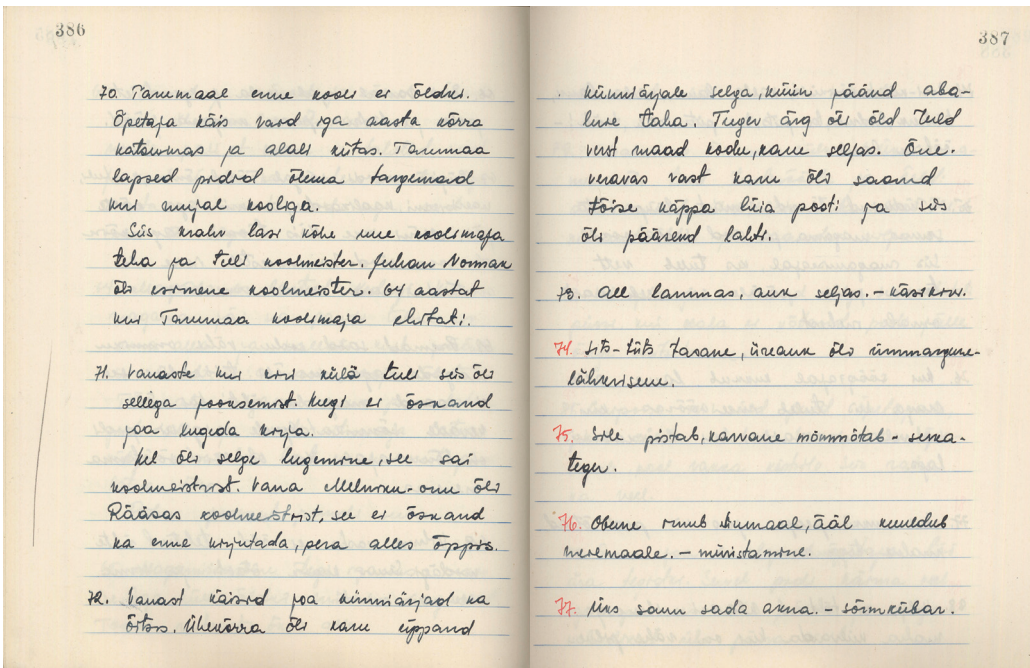 386
70. Tammaal enne kooli ei õldki.
Õpetaja käis vaid iga aasta kõrra
katsumas ja alali kiitas. Tammaa
lapsed pidid õlema targemad
kui mujal kooliga.
Siis krahv lasi kõhe uue koolimaja
teha ja tuli koolmeister. Juhan Norman
õli esimene koolmeister. 64 aastat
kui Tammaa koolimaja ehitati.
71. Vanaste kui kiri külä tuli siis õli
sellega jooksemist. Kegi ei õskand
joa lugeda kirja.
Kel õli selge lugemine, see sai
koolmeistrist. Vana Melniku-onu õli
Rääsas koolmeistrist, see ei õskand
ka enne kirjutada, pera alles õppis.
72. Vanast käisid joa künniärjad ka
õitsis. Ühekõrra õli karu eippand
387
künniärjale selga, küün päänd aba-
luse taha. Tugev ärg õli õld tuld
verst maad kodu, karu seljas. Õue-
veravas vast karu õli saand
tõise käppa lüia posti ja siis
õli päärend lahti.
73. All lammas, auk seljas. – käsikivi.
74. Sits-siits tasane, üreauk õli ümmargune-
lähkrisene.
75. Sile pistab, karvane mõmmõtab – sema-
teger.
76. Obene irnub Iiumaal, ääl kuuldub
meremaale. – müristamine.
77. Üks saun sada akna. – sõrmkübar.